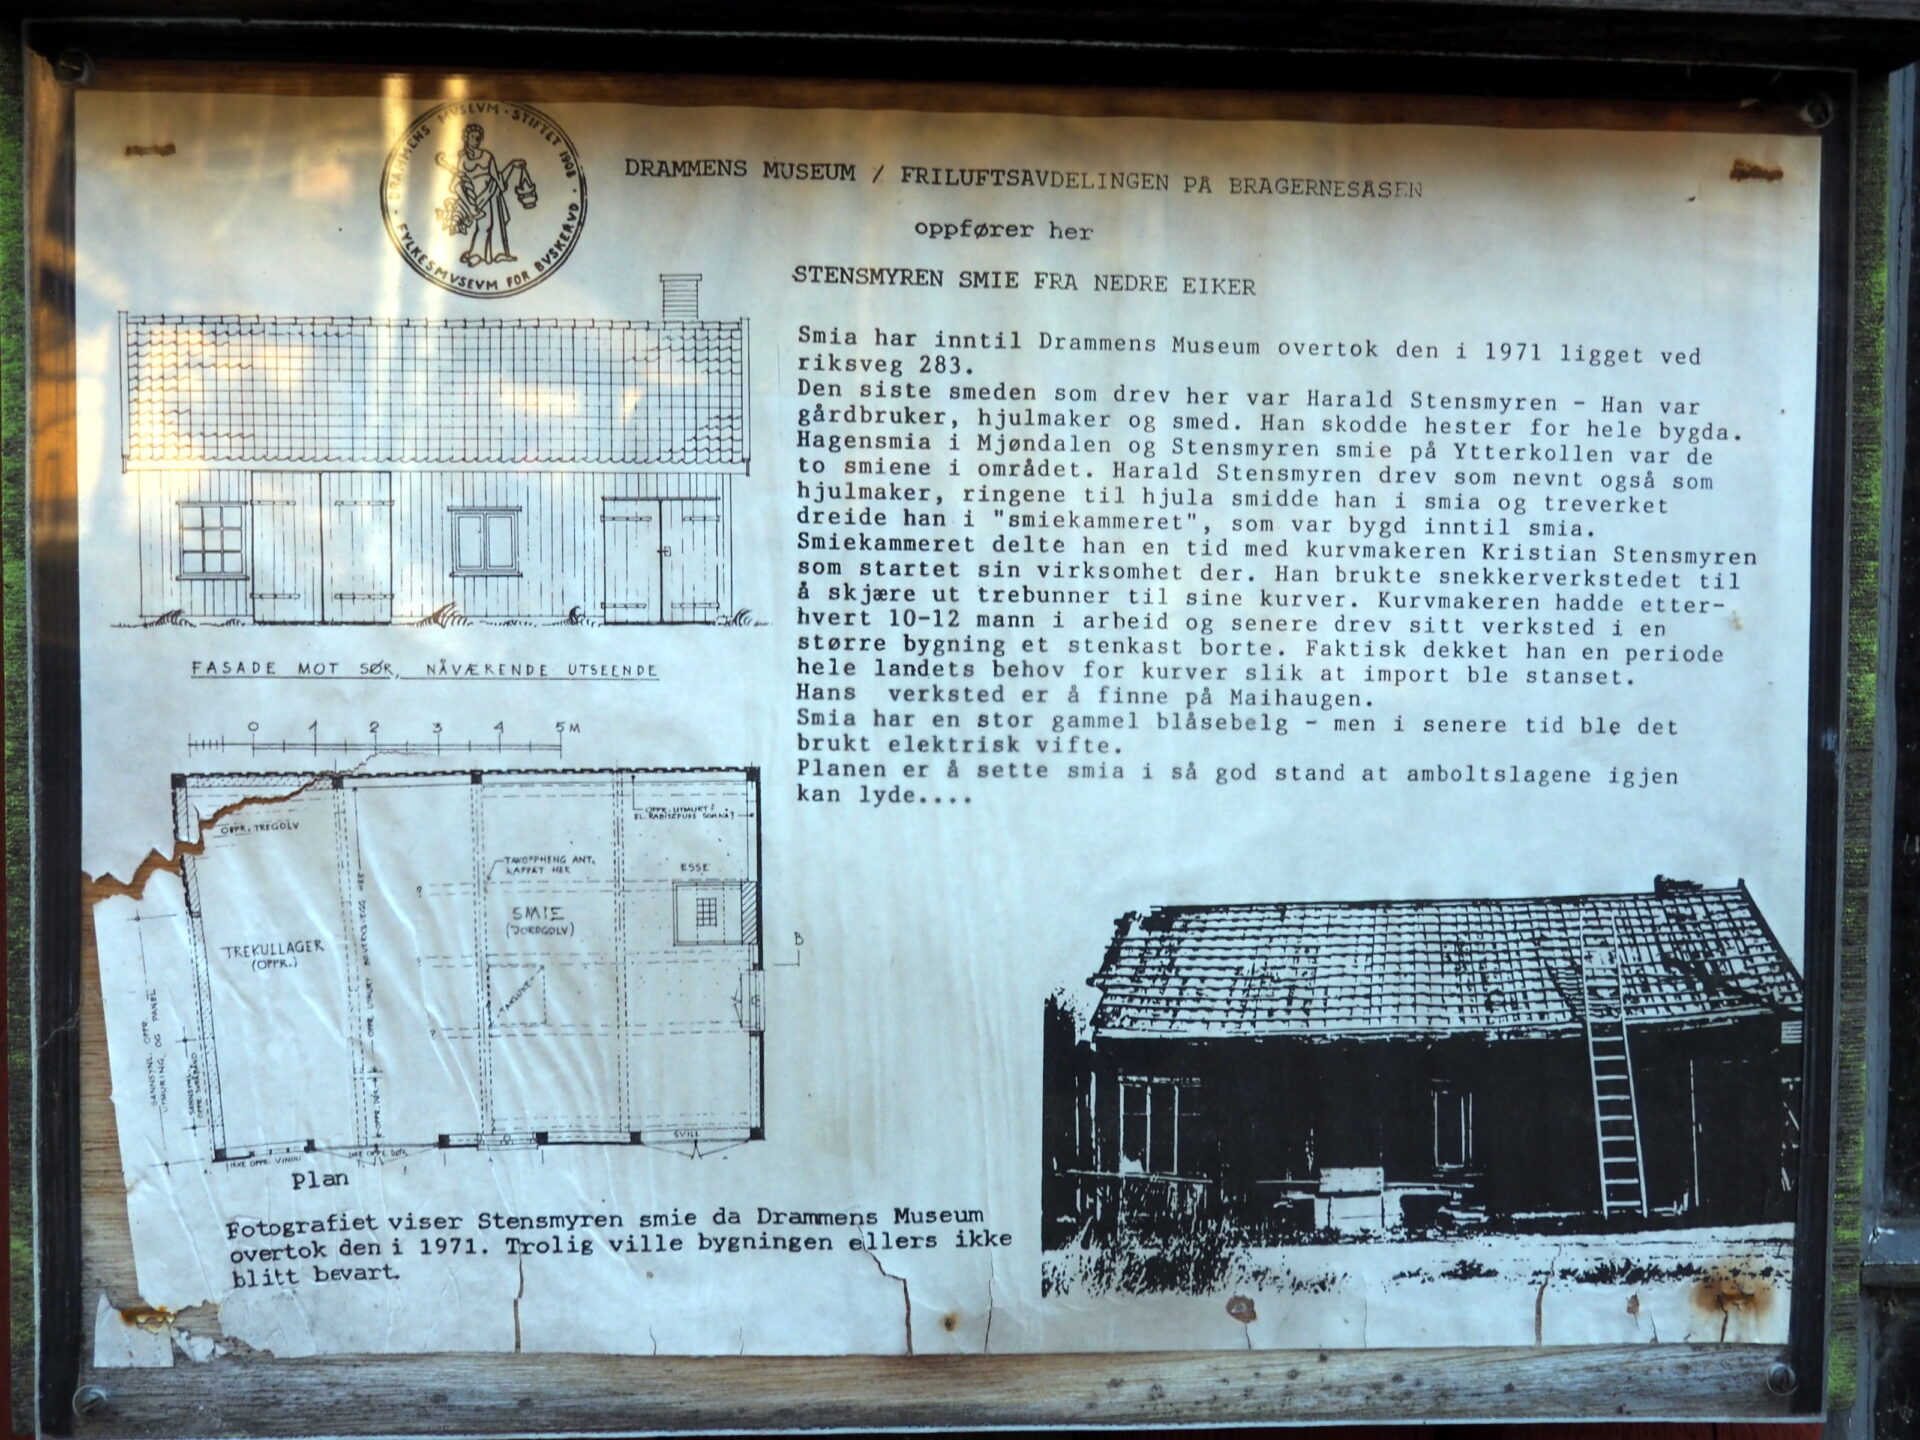 DRAMMENS MUSEVM · STIFTET 1908 ·
FYLKESMVSEVM FOR BVSKERVD
DRAMMENS MUSEUM / FRILUFTSAVDELINGEN PÅ BRAGERNESÅSEN
oppfører her
STENSMYREN SMIE FRA NEDRE EIKER
Smia har inntil Drammens Museum overtok den i 1971 ligget ved
riksveg 283.
Den siste smeden som drev her var Harald Stensmyren - Han var
gårdbruker, hjulmaker og smed. Han skodde hester for hele bygda.
Hagensmia i Mjøndalen og Stensmyren smie på Ytterkollen var de
to smiene i området. Harald Stensmyren drev som nevnt også som
hjulmaker, ringene til hjula smidde han i smia og treverket
dreide han i "smiekammeret", som var bygd inntil smia.
Smiekammeret delte han en tid med kurvmakeren Kristian Stensmyren
som startet sin virksomhet der. Han brukte snekkerverkstedet til
å skjære ut trebunner til sine kurver. Kurvmakeren hadde etter-
hvert 10-12 mann i arbeid og senere drev sitt verksted i en
større bygning et stenkast borte. Faktisk dekket han en periode
hele landets behov for kurver slik at import ble stanset.
Hans verksted er å finne på Maihaugen.
Smia har en stor gammel blåsebelg - men i senere tid ble det
brukt elektrisk vifte.
Planen er å sette smia i så god stand at amboltslagene igjen
kan lyde....
FASADE MOT SØR, NÅVÆRENDE UTSEENDE
0 1 2 3 4 5 M
OPPR. UTMURT?
EL. RABITZPUSS SOM NÅ?
OPPR. TREGOLV
TAKOPPHENG ANT.
KAPPET HER
ESSE
SMIE
(JORDGOLV)
TREKULLAGER
(OPPR.)
B
TAKLUKE
SANNSYNL. OPPR.
UTMURING, OG PANEL
SANNSYNL.
OPPR. SKRÅBÅND
IKKE OPPR. VINDU
IKKE OPPR. DØR
SVILL
Plan
Fotografiet viser Stensmyren smie da Drammens Museum
overtok den i 1971. Trolig ville bygningen ellers ikke
blitt bevart.